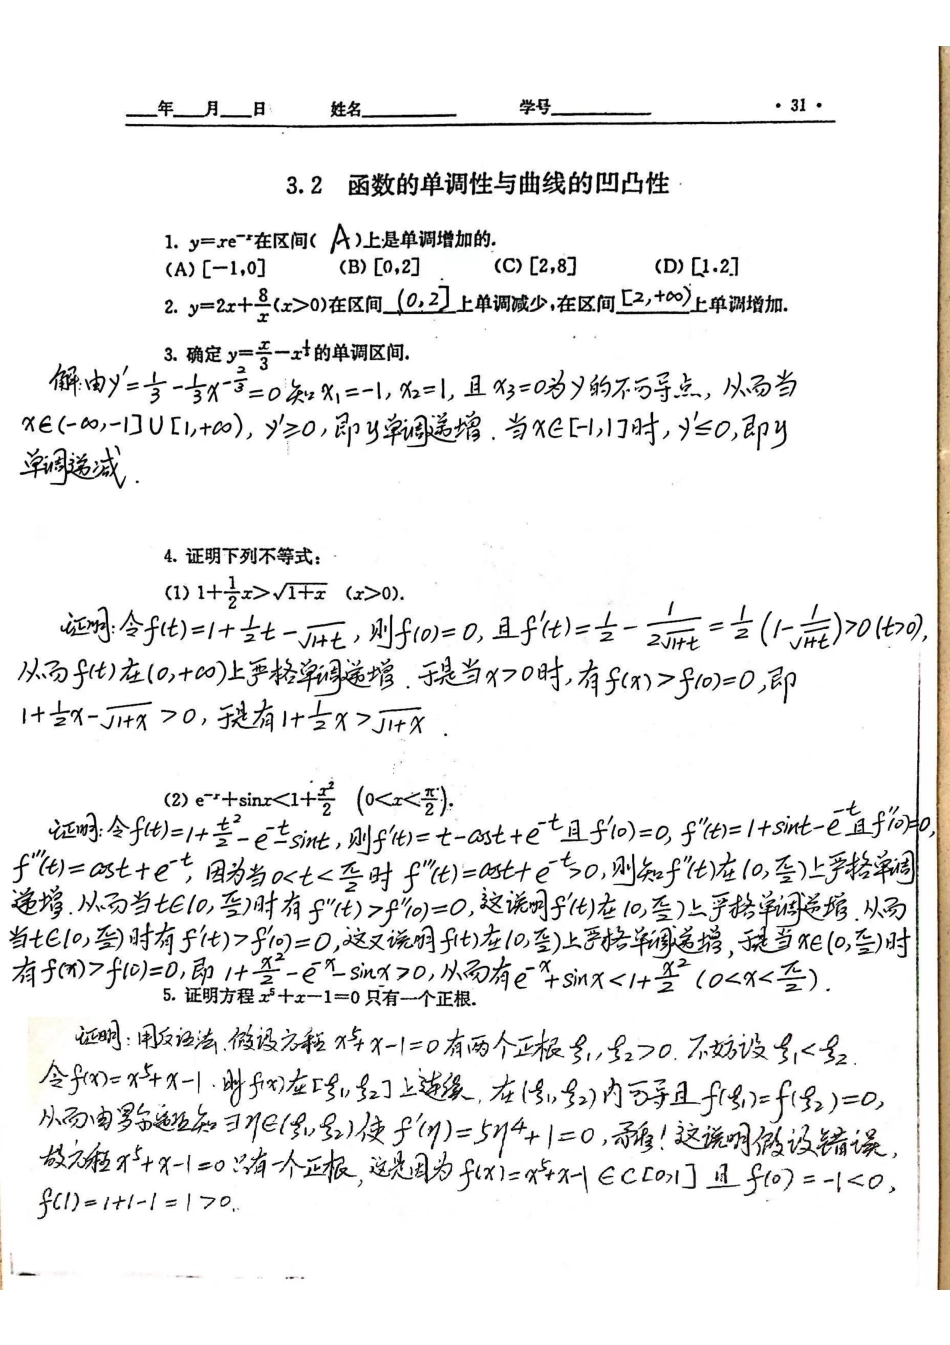 ___年___月___日 姓名________ 学号________ · 31 ·
3.2 函数的单调性与曲线的凹凸性
1. y=xe⁻ˣ在区间( A )上是单调增加的.
(A) [-1,0] (B) [0,2] (C) [2,8] (D) [1.2]
2. y=2x+8/x(x>0)在区间 (0,2] 上单调减少,在区间 [2,+∞) 上单调增加.
3. 确定 y=x/3-x^(1/3) 的单调区间.
解:由y'=1/3-1/3x^(-2/3)=0知x₁=-1, x₂=1, 且x₃=0为y的不可导点, 从而当
x∈(-∞,-1]∪[1,+∞), y'≥0, 即y单调递增. 当x∈[-1,1]时, y'≤0, 即y
单调递减.
4. 证明下列不等式:
(1) 1+1/2x>√(1+x) (x>0).
证明:令f(t)=1+1/2t-√(1+t), 则f(0)=0, 且f'(t)=1/2-1/(2√(1+t))=1/2(1-1/√(1+t))>0(t>0),
从而f(t)在(0,+∞)上严格单调递增. 于是当x>0时, 有f(x)>f(0)=0, 即
1+1/2x-√(1+x)>0, 于是有1+1/2x>√(1+x).
(2) e⁻ˣ+sinx<1+x²/2 (0<x<π/2).
证明:令f(t)=1+t²/2-e^(-t)-sint, 则f'(t)=t-cost+e^(-t)且f'(0)=0, f''(t)=1+sint-e^(-t)且f''(0)=0,
f'''(t)=cost+e^(-t), 因为当0<t<π/2时 f'''(t)=cost+e^(-t)>0, 则知f''(t)在(0,π/2)上严格单调
递增. 从而当t∈(0,π/2)时有f''(t)>f''(0)=0, 这说明f'(t)在(0,π/2)上严格单调递增. 从而
当t∈(0,π/2)时有f'(t)>f'(0)=0, 这又说明f(t)在(0,π/2)上严格单调递增, 于是当x∈(0,π/2)时
有f(x)>f(0)=0, 即1+x²/2-e⁻ˣ-sinx>0, 从而有e⁻ˣ+sinx<1+x²/2 (0<x<π/2).
5. 证明方程 x⁵+x-1=0 只有一个正根.
证明:用反证法. 假设方程x⁵+x-1=0有两个正根ξ₁,ξ₂>0. 不妨设ξ₁<ξ₂.
令f(x)=x⁵+x-1. 则f(x)在[ξ₁,ξ₂]上连续, 在(ξ₁,ξ₂)内可导且f(ξ₁)=f(ξ₂)=0,
从而由罗尔定理知∃η∈(ξ₁,ξ₂)使f'(η)=5η⁴+1=0, 矛盾! 这说明假设错误,
故方程x⁵+x-1=0只有一个正根, 这是因为f(x)=x⁵+x-1∈C[0,1]且f(0)=-1<0,
f(1)=1+1-1=1>0.